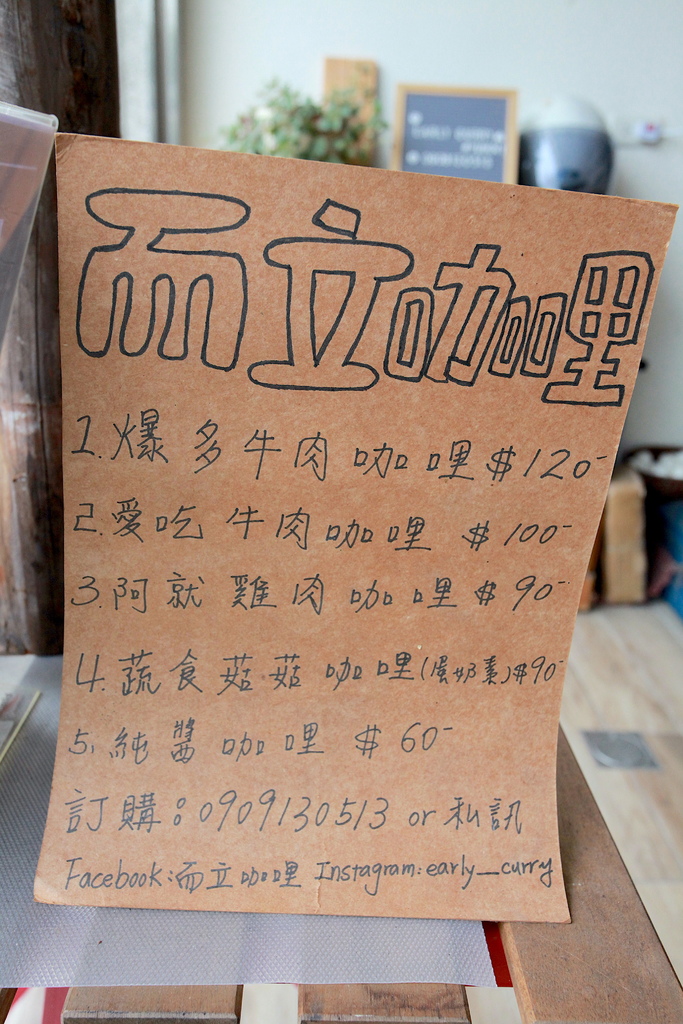 而立咖哩
1.爆多牛肉咖哩$120-
2.愛吃牛肉咖哩 $100-
3.阿就雞肉咖哩$90-
4.蔬食菇菇咖哩(蛋奶素)$90-
5.純醬咖哩 $60-
訂購:0909130513 or 私訊
Facebook:而立咖哩 Instagram:early__curry